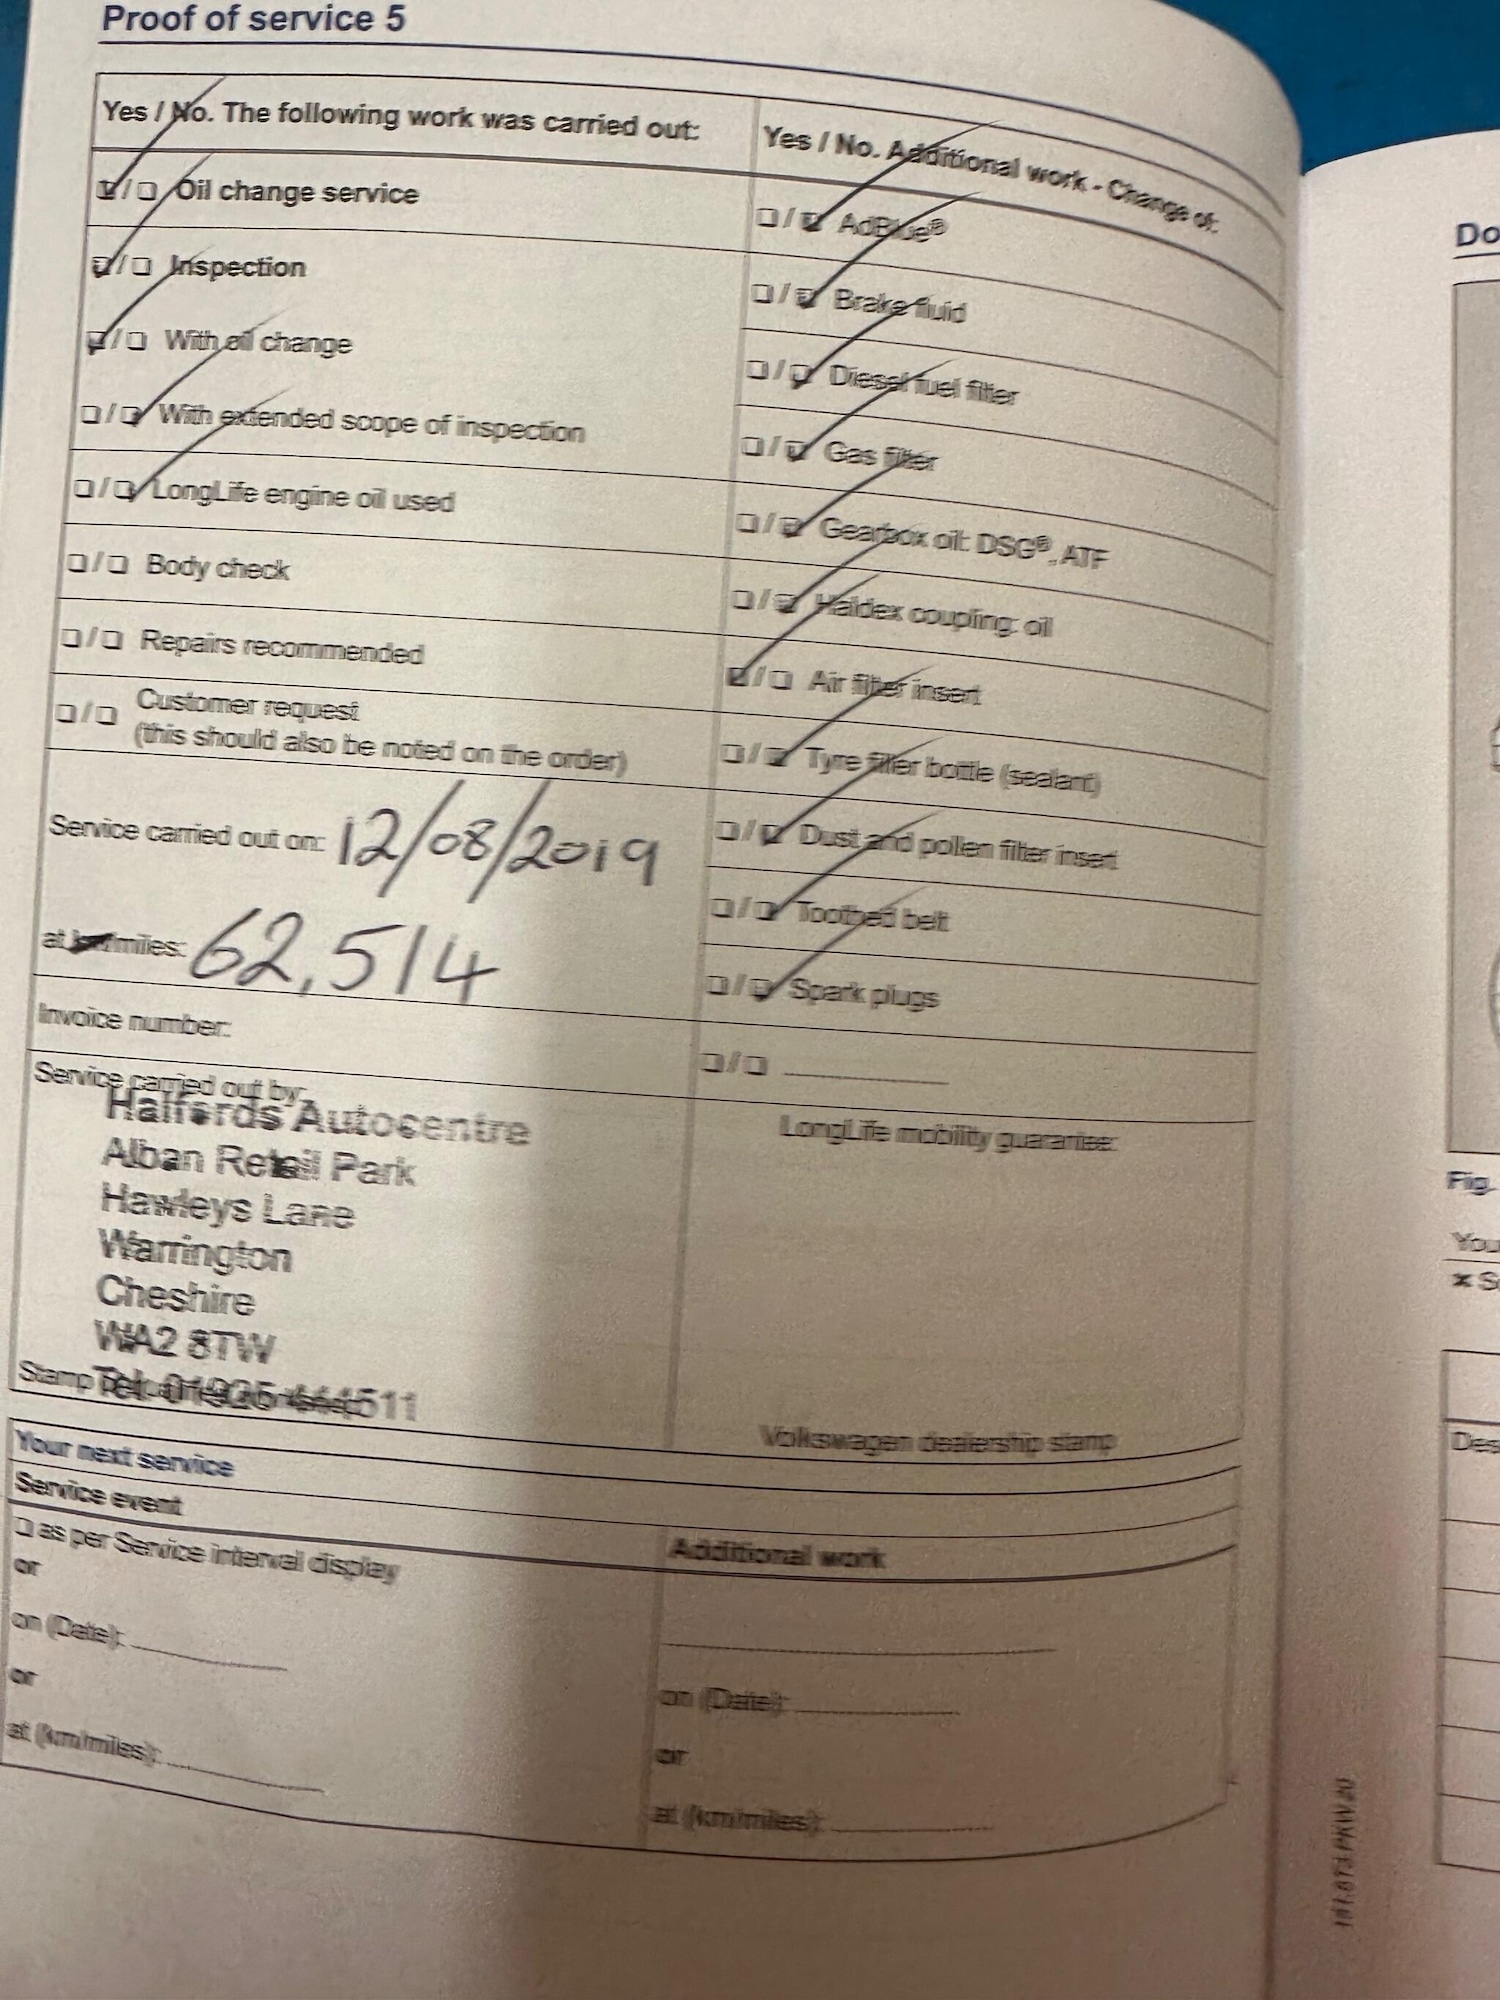 Proof of service 5
Yes / No. The following work was carried out:
☑ / ☐ Oil change service
☑ / ☐ Inspection
☑ / ☐ With oil change
☐ / ☑ With extended scope of inspection
☐ / ☑ LongLife engine oil used
☐ / ☐ Body check
☐ / ☐ Repairs recommended
☐ / ☐ Customer request
(this should also be noted on the order)
Service carried out on: 12/08/2019
at km/miles: 62,514
Invoice number:
Service carried out by:
Halfords Autocentre
Alban Retail Park
Hawleys Lane
Warrington
Cheshire
WA2 8TW
Tel: 01925 444511
Stamp
Yes / No. Additional work - Change of:
☐ / ☑ AdBlue®
☐ / ☑ Brake fluid
☐ / ☑ Diesel fuel filter
☐ / ☑ Gas filter
☐ / ☑ Gearbox oil: DSG®, ATF
☐ / ☑ Haldex coupling: oil
☑ / ☐ Air filter insert
☐ / ☑ Tyre filler bottle (sealant)
☐ / ☑ Dust and pollen filter insert
☐ / ☑ Toothed belt
☐ / ☑ Spark plugs
☐ / ☐
LongLife mobility guarantee:
Volkswagen dealership stamp
Your next service
Service event
☐ as per Service interval display
or
on (Date):
or
at (km/miles):
Additional work
on (Date):
or
at (km/miles):
Do
Fig.
You
Des